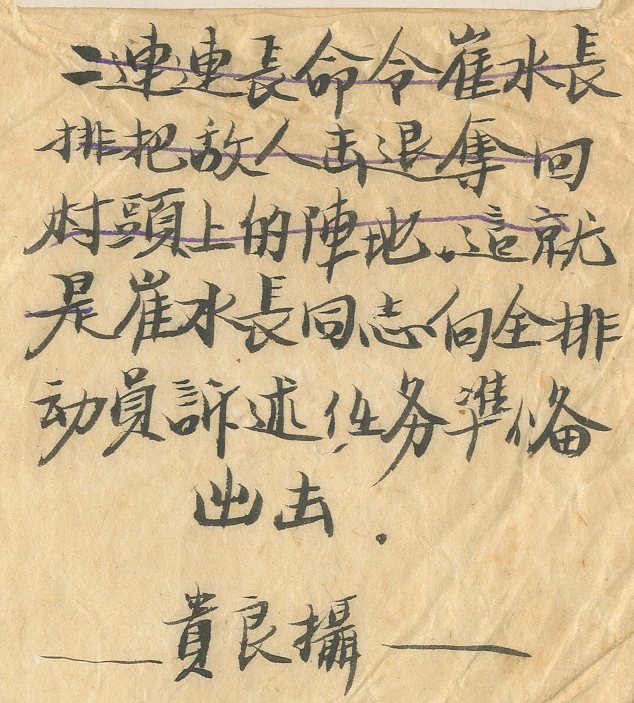 二連連長命令崔水長
排把敌人击退奪回
村頭上的陣地。這就
是崔水長同志向全排
动員訴述任务準备
出击.
——貴良攝——